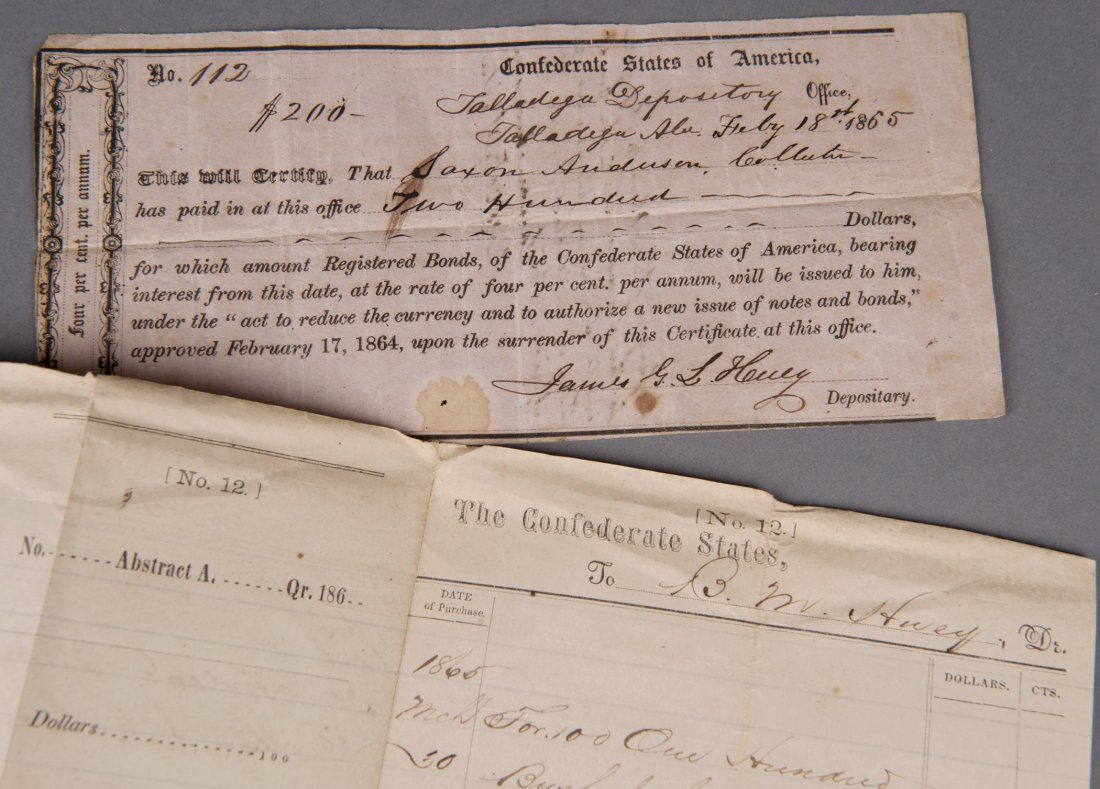 No. 112
Confederate States of America,
$200-
Talladega Depository Office,
Talladega Ala. Feby 18st 1865
This will Certify, That Saxon Anderson, Collector
has paid in at this office Two Hundred
Dollars,
for which amount Registered Bonds, of the Confederate States of America, bearing
interest from this date, at the rate of four per cent. per annum, will be issued to him,
under the "act to reduce the currency and to authorize a new issue of notes and bonds,"
approved February 17, 1864, upon the surrender of this Certificate at this office.
James G. L. Huey
Depositary.
Four per cent. per annum.
[No. 12.]
No. Abstract A. Qr. 186
Dollars 100
[No. 12.]
The Confederate States,
To B. M. Huey, Dr.
DATE
of Purchase.
DOLLARS. CTS.
1865
Mch For 100 One Hundred
30